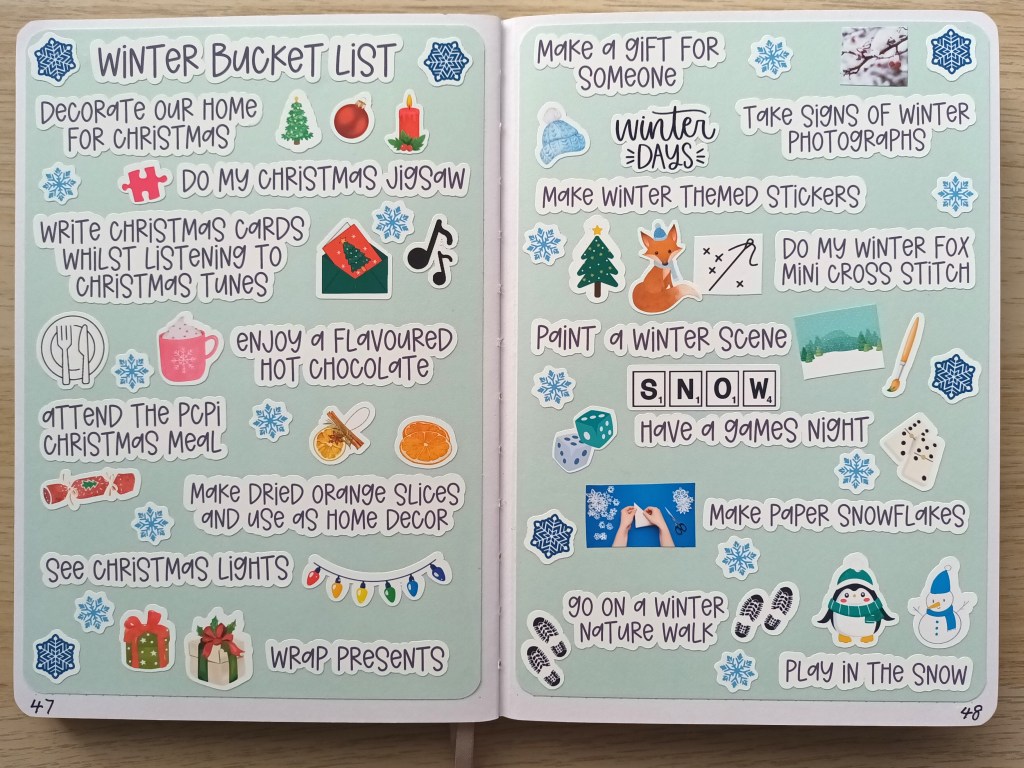 WINTER BUCKET LIST
DECORATE OUR HOME
FOR CHRISTMAS
DO MY CHRISTMAS JIGSAW
WRITE CHRISTMAS CARDS
WHILST LISTENING TO
CHRISTMAS TUNES
ENJOY A FLAVOURED
HOT CHOCOLATE
ATTEND THE PCPI
CHRISTMAS MEAL
MAKE DRIED ORANGE SLICES
AND USE AS HOME DECOR
SEE CHRISTMAS LIGHTS
WRAP PRESENTS
47
MAKE A GIFT FOR
SOMEONE
winter
DAYS
TAKE SIGNS OF WINTER
PHOTOGRAPHS
MAKE WINTER THEMED STICKERS
DO MY WINTER FOX
MINI CROSS STITCH
PAINT A WINTER SCENE
S1 N1 O1 W4
HAVE A GAMES NIGHT
MAKE PAPER SNOWFLAKES
GO ON A WINTER
NATURE WALK
PLAY IN THE SNOW
48